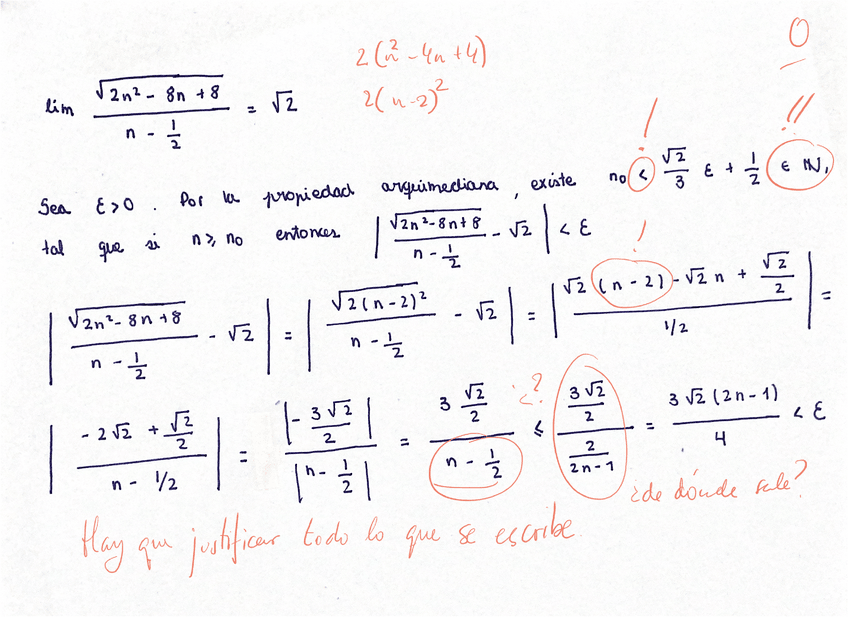 0
2(n² - 4n + 4)
2(n-2)²
lim √(2n² - 8n + 8) / (n - 1/2) = √2
! !!
Sea ε>0. Por la propiedad arquimediana, existe n₀ < √2/3 ε + 1/2 ∈ ℕ,
tal que si n ≥ n₀ entonces | √(2n²-8n+8) / (n - 1/2) - √2 | < ε
!
| √(2n² - 8n + 8) / (n - 1/2) - √2 | = | √(2(n-2)²) / (n - 1/2) - √2 | = | (√2 (n-2) - √2 n + √2/2) / (1/2) | =
| (-2√2 + √2/2) / (n - 1/2) | = |- 3√2/2| / |n - 1/2| = (3 √2/2) / (n - 1/2) ≤ (3√2/2) / (2/(2n-1)) = 3√2 (2n-1) / 4 < ε
¿?
¿de dónde sale?
Hay que justificar todo lo que se escribe.